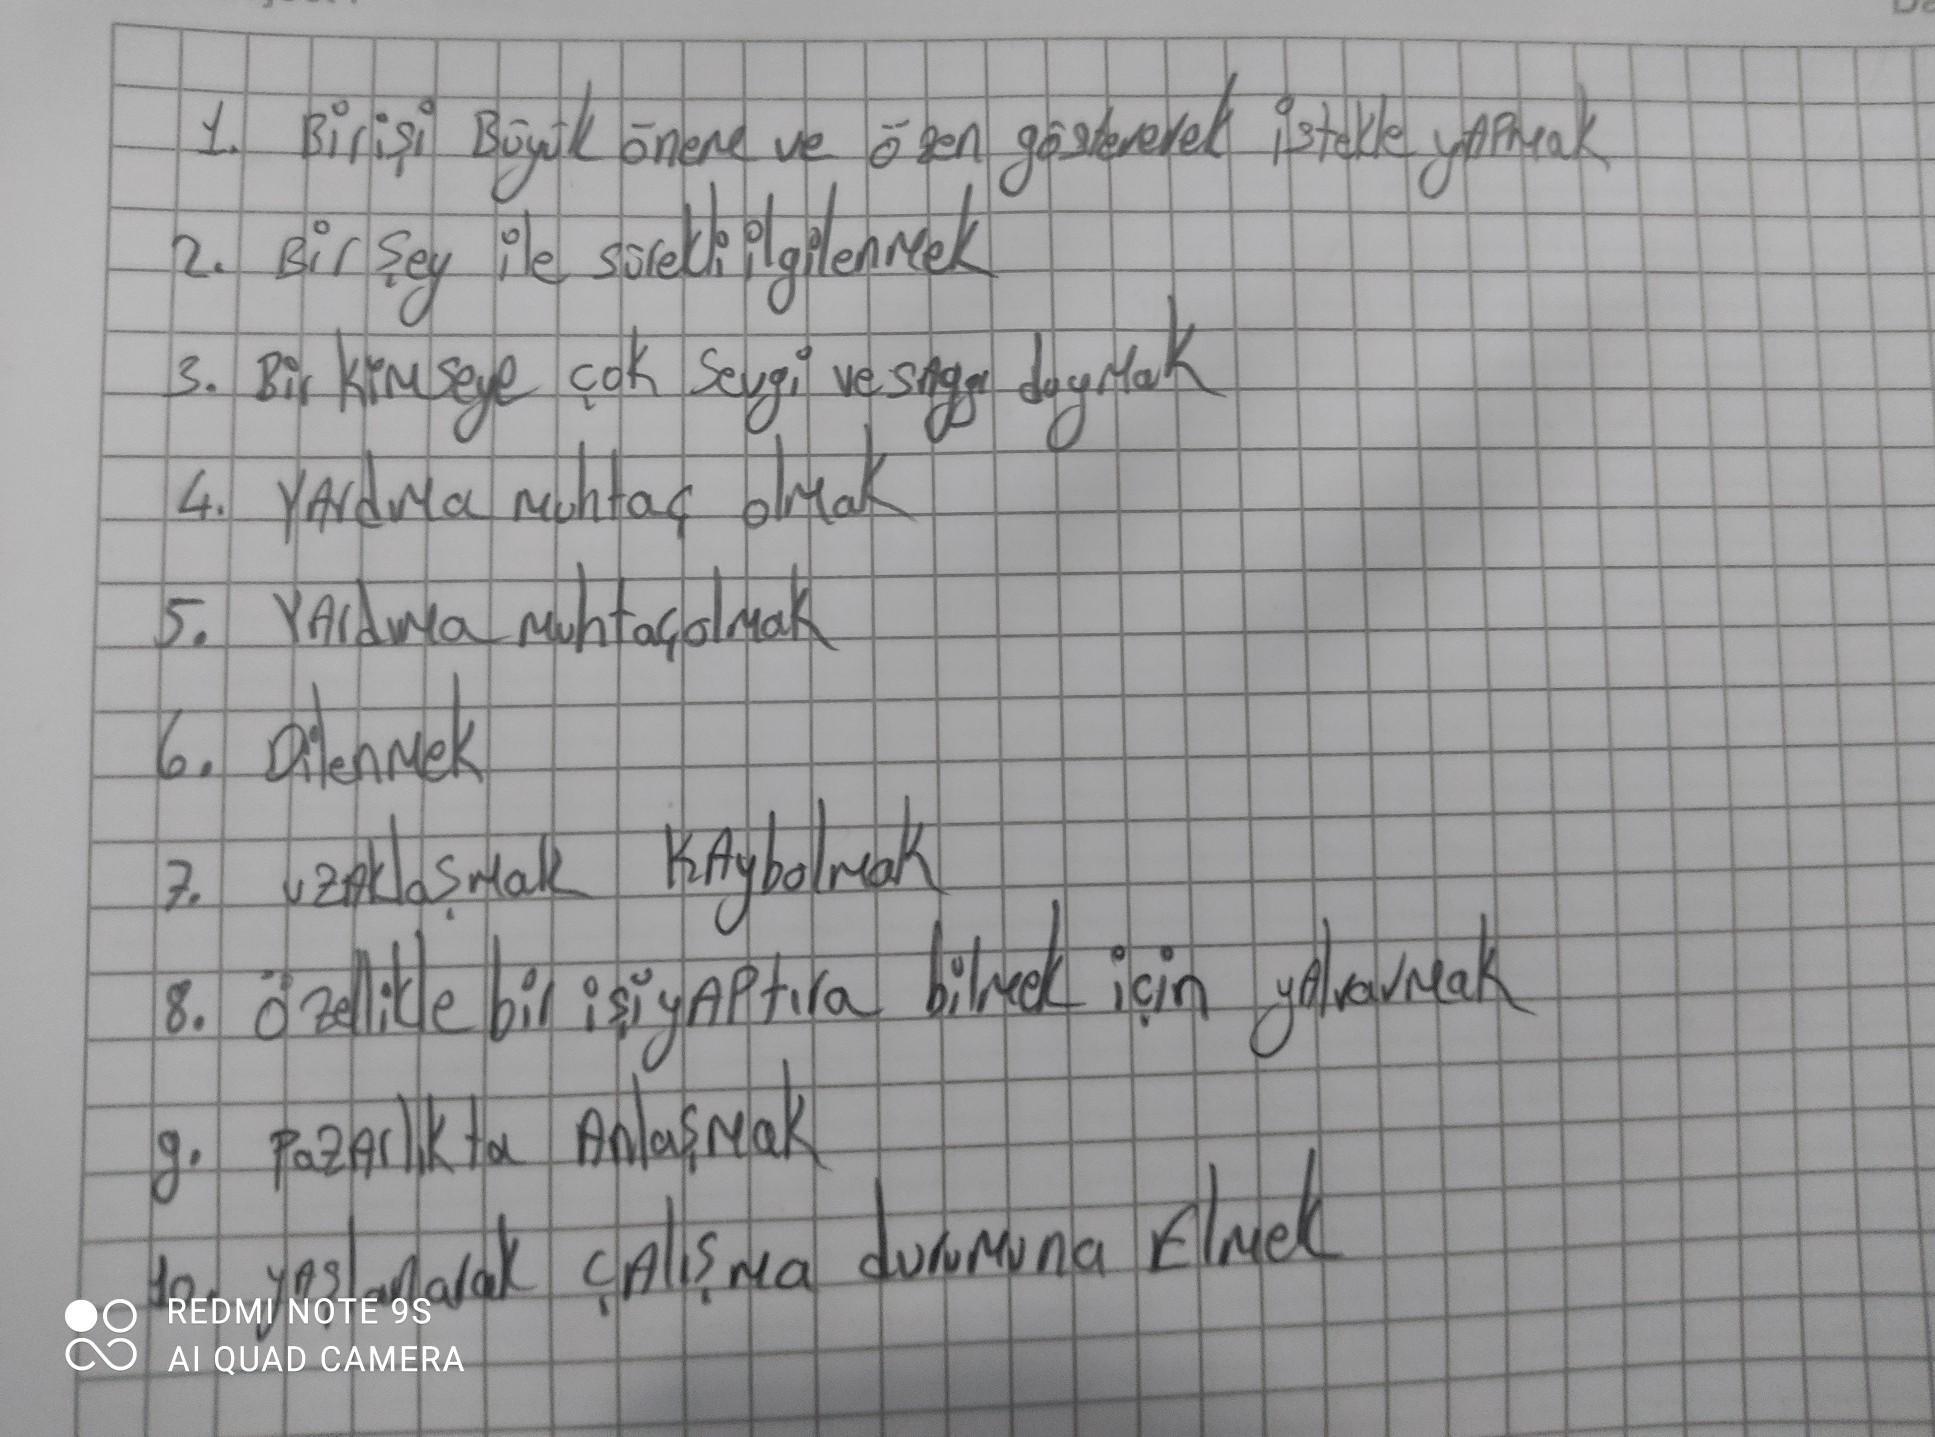 1. Bir işi Büyük önem ve özen göstererek istekle yAPMak
2. Bir Şey ile sürekli ilgilenMek
3. Bir KiMseye çok Sevgi ve sAygı duyMak
4. YArdıMa Muhtaç olMak
5. YArdıMa Muhtaç olMak
6. DilenMek
7. UZAKlaşMak KAybolMak
8. Özellikle bir işi yAPtıra bilMek için yAlvarMak
9. PaZArlıkta AnlaşMak
10. yAşlanarak ÇAlışMa duruMuna ElMek
REDMI NOTE 9S
AI QUAD CAMERA